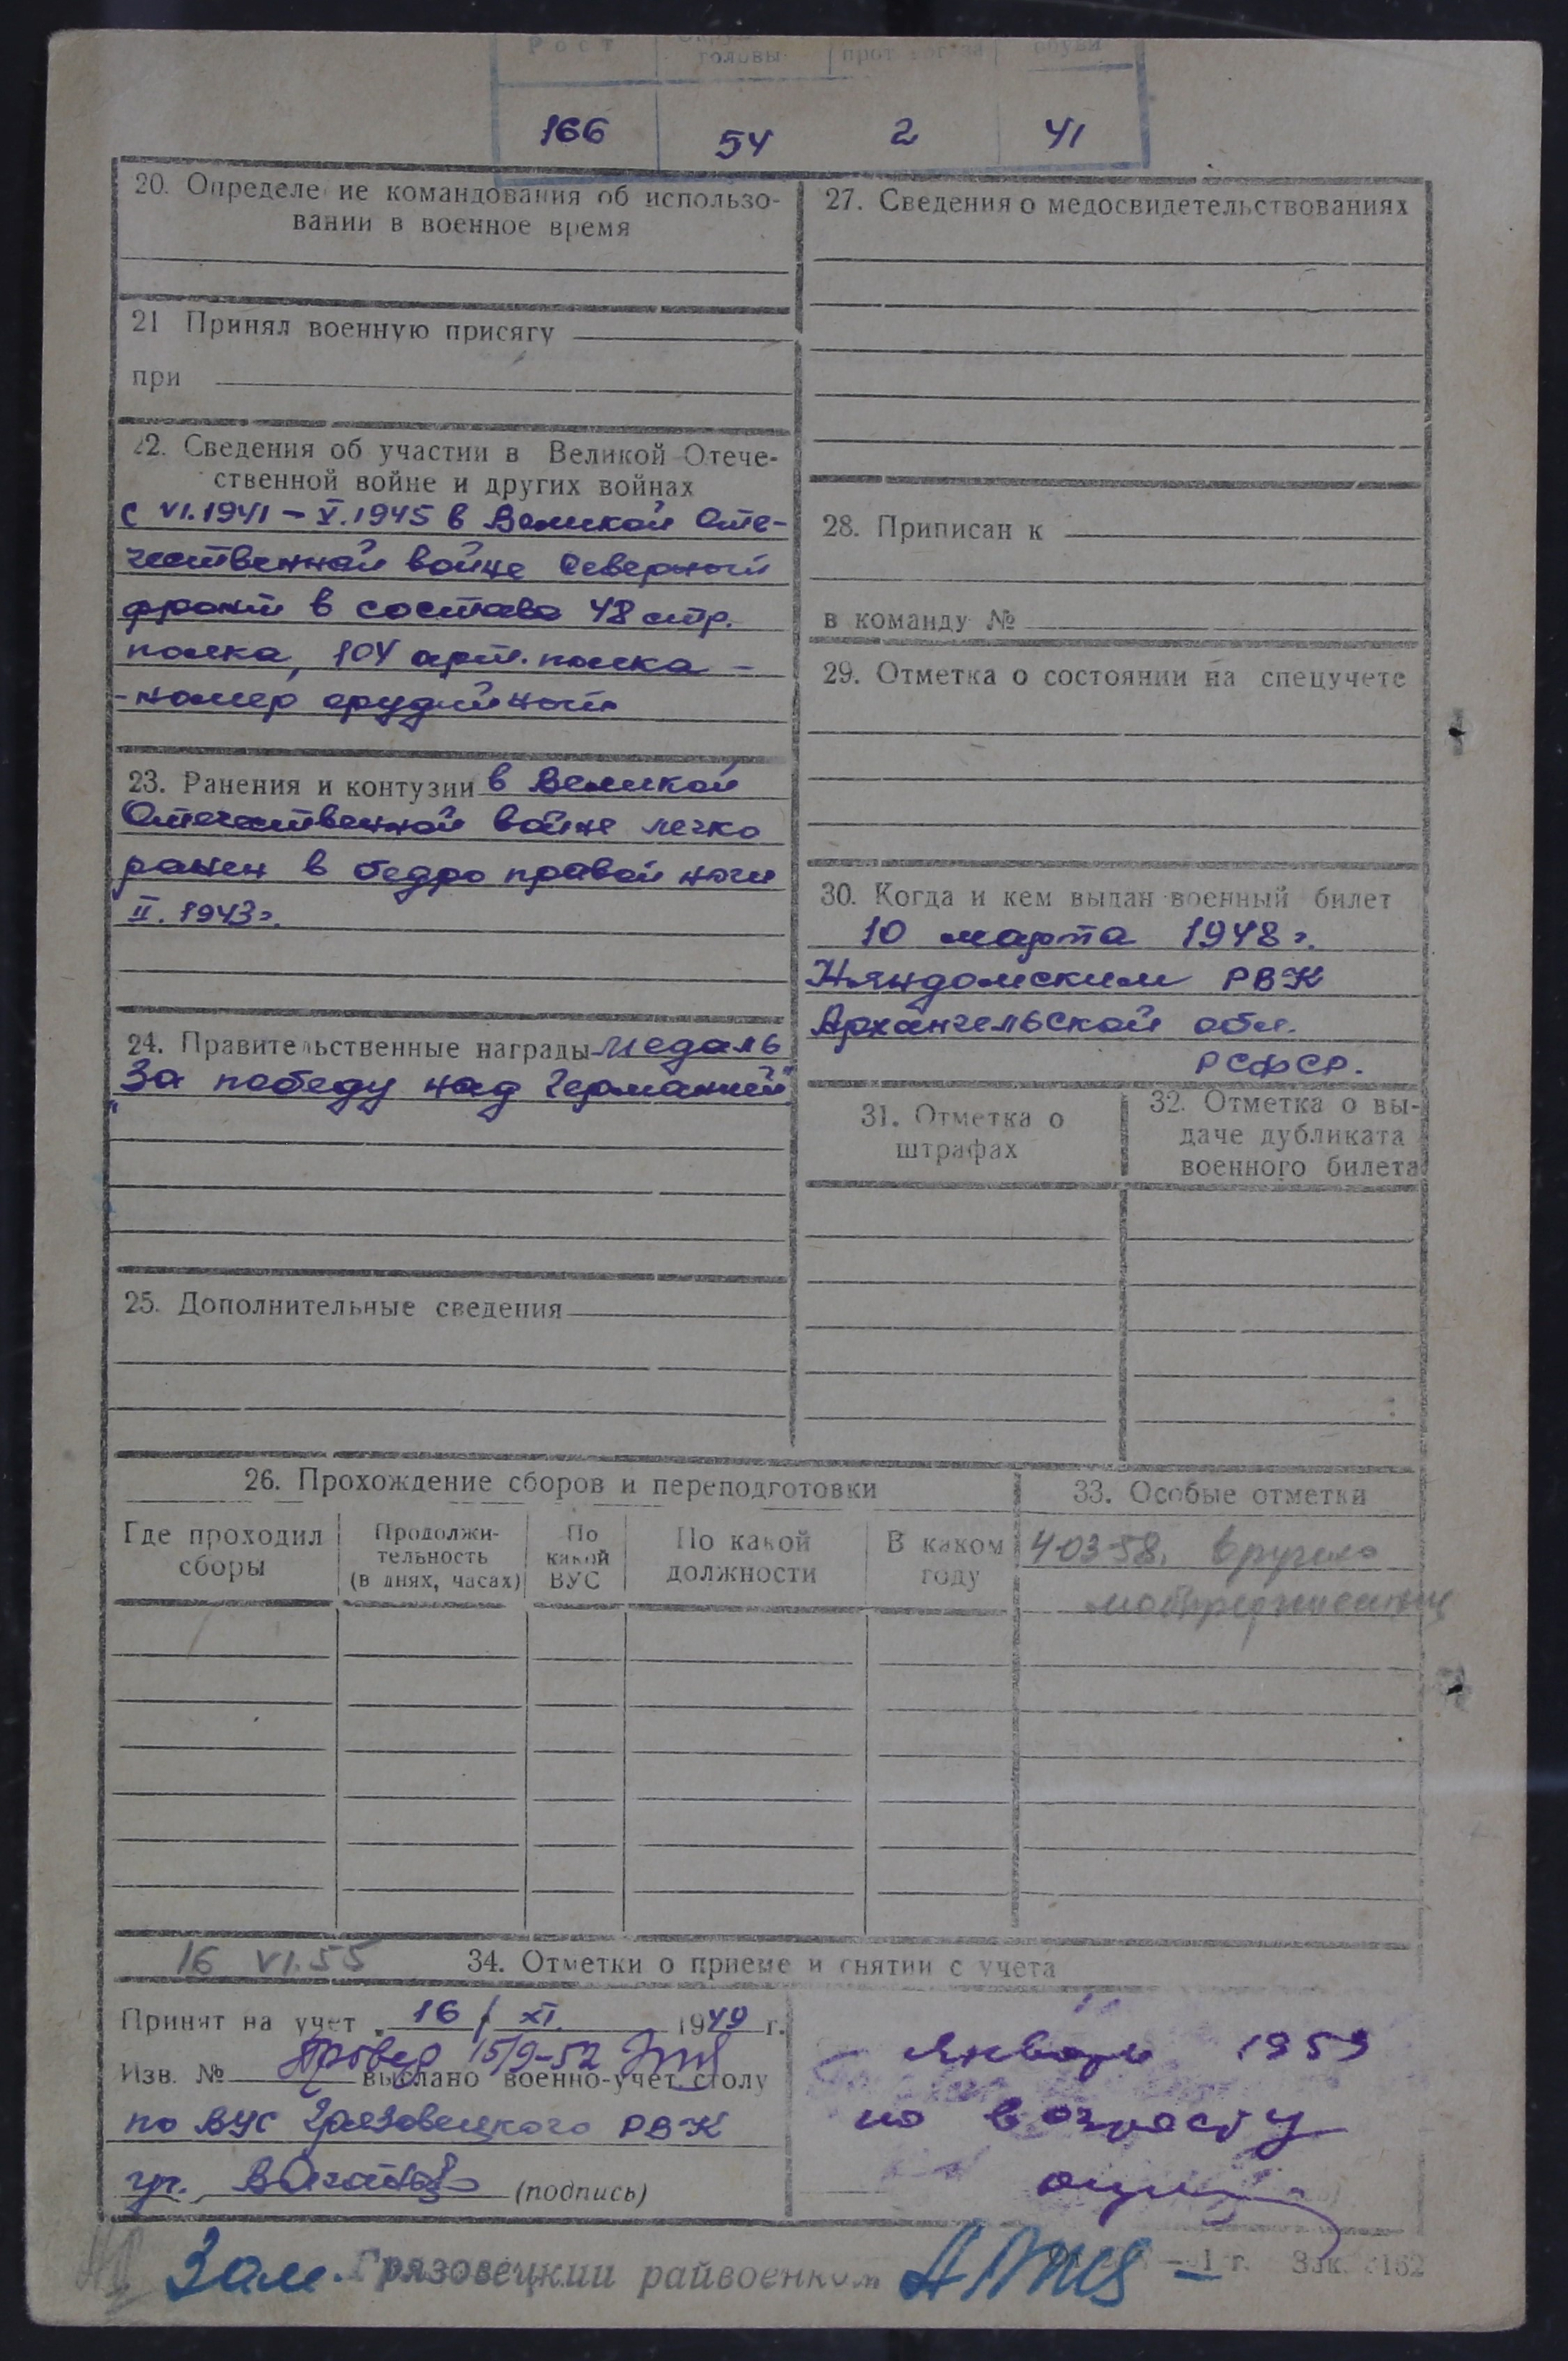 Рост головы прот обуви
166 54 2 41
20. Определение командования об использо-
вании в военное время
21 Принял военную присягу
при
22. Сведения об участии в Великой Отече-
ственной войне и других войнах
с VI.1941 – V.1945 в Великой Оте-
чественной войне Северный
фронт в составе 48 стр.
полка, 104 арт. полка –
- номер орудийный
23. Ранения и контузии в Великой
Отечественной войне легко
ранен в бедро правой ноги
II. 1943г.
24. Правительственные награды медаль
"За победу над Германией"
25. Дополнительные сведения
27. Сведения о медосвидетельствованиях
28. Приписан к
в команду №
29. Отметка о состоянии на спецучете
30. Когда и кем выдан военный билет
10 марта 1948 г.
Няндомским РВК
Архангельской обл.
РСФСР.
31. Отметка о
штрафах
32. Отметка о вы-
даче дубликата
военного билета
26. Прохождение сборов и переподготовки
Где проходил
сборы
Продолжи-
тельность
(в днях, часах)
По
какой
ВУС
По какой
должности
В каком
году
33. Особые отметки
4-03-58.
16 VI.55
34. Отметки о приеме и снятии с учета
Принят на учет 16/XI. 1949 г.
Провер 15/9-52
Изв. № выслано военно-учет столу
по ВУС Грязовецкого РВК
(подпись)
Январь 1959
по возрасту
Зам. Грязовецкий райвоенком
1 г. Зак. 3162